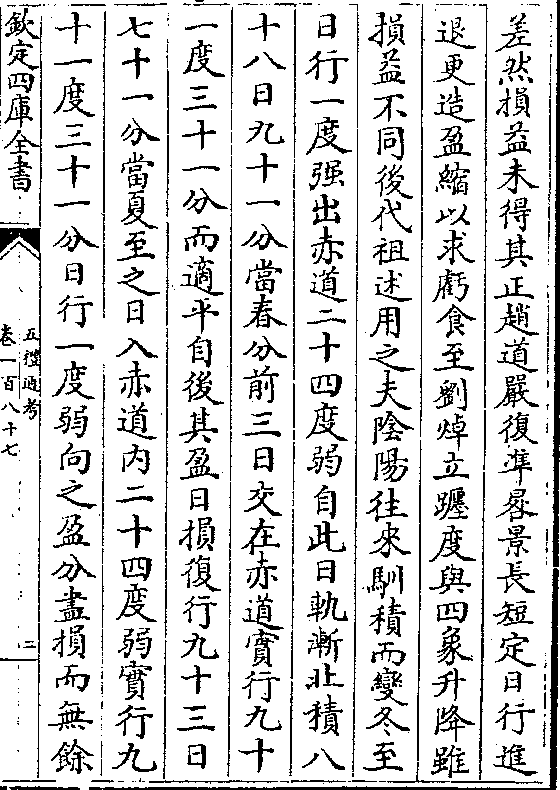 差然損益未得其正趙道嚴復準晷景長短定日行進
退更造盈縮以求虧食至劉焯立躔度與四象升降雖
損益不同後代祖述用之夫陰陽往來馴積而變冬至
日行一度强出赤道二十四度弱自此日軌漸北積八
十八日九十一分當春分前三日交在赤道實行九十
一度三十一分而適平自後其盈日損復行九十三日
七十一分當夏至之日入赤道内二十四度弱實行九
十一度三十一分日行一度弱向之盈分盡損而無餘
欽定四庫全書
五禮通考
卷一百八十七
二